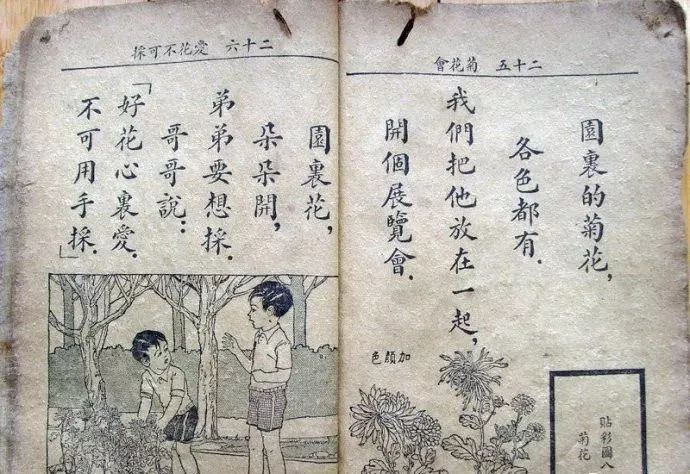 二十五 菊花會
園裏的菊花，
各色都有.
我們把他放在一起，
開個展覽會.
加顏色
貼彩圖
菊花
二十六 愛花不可採
園裏花，
朵朵開，
弟弟要想採.
哥哥說：
「好花心裏愛.
不可用手採.」